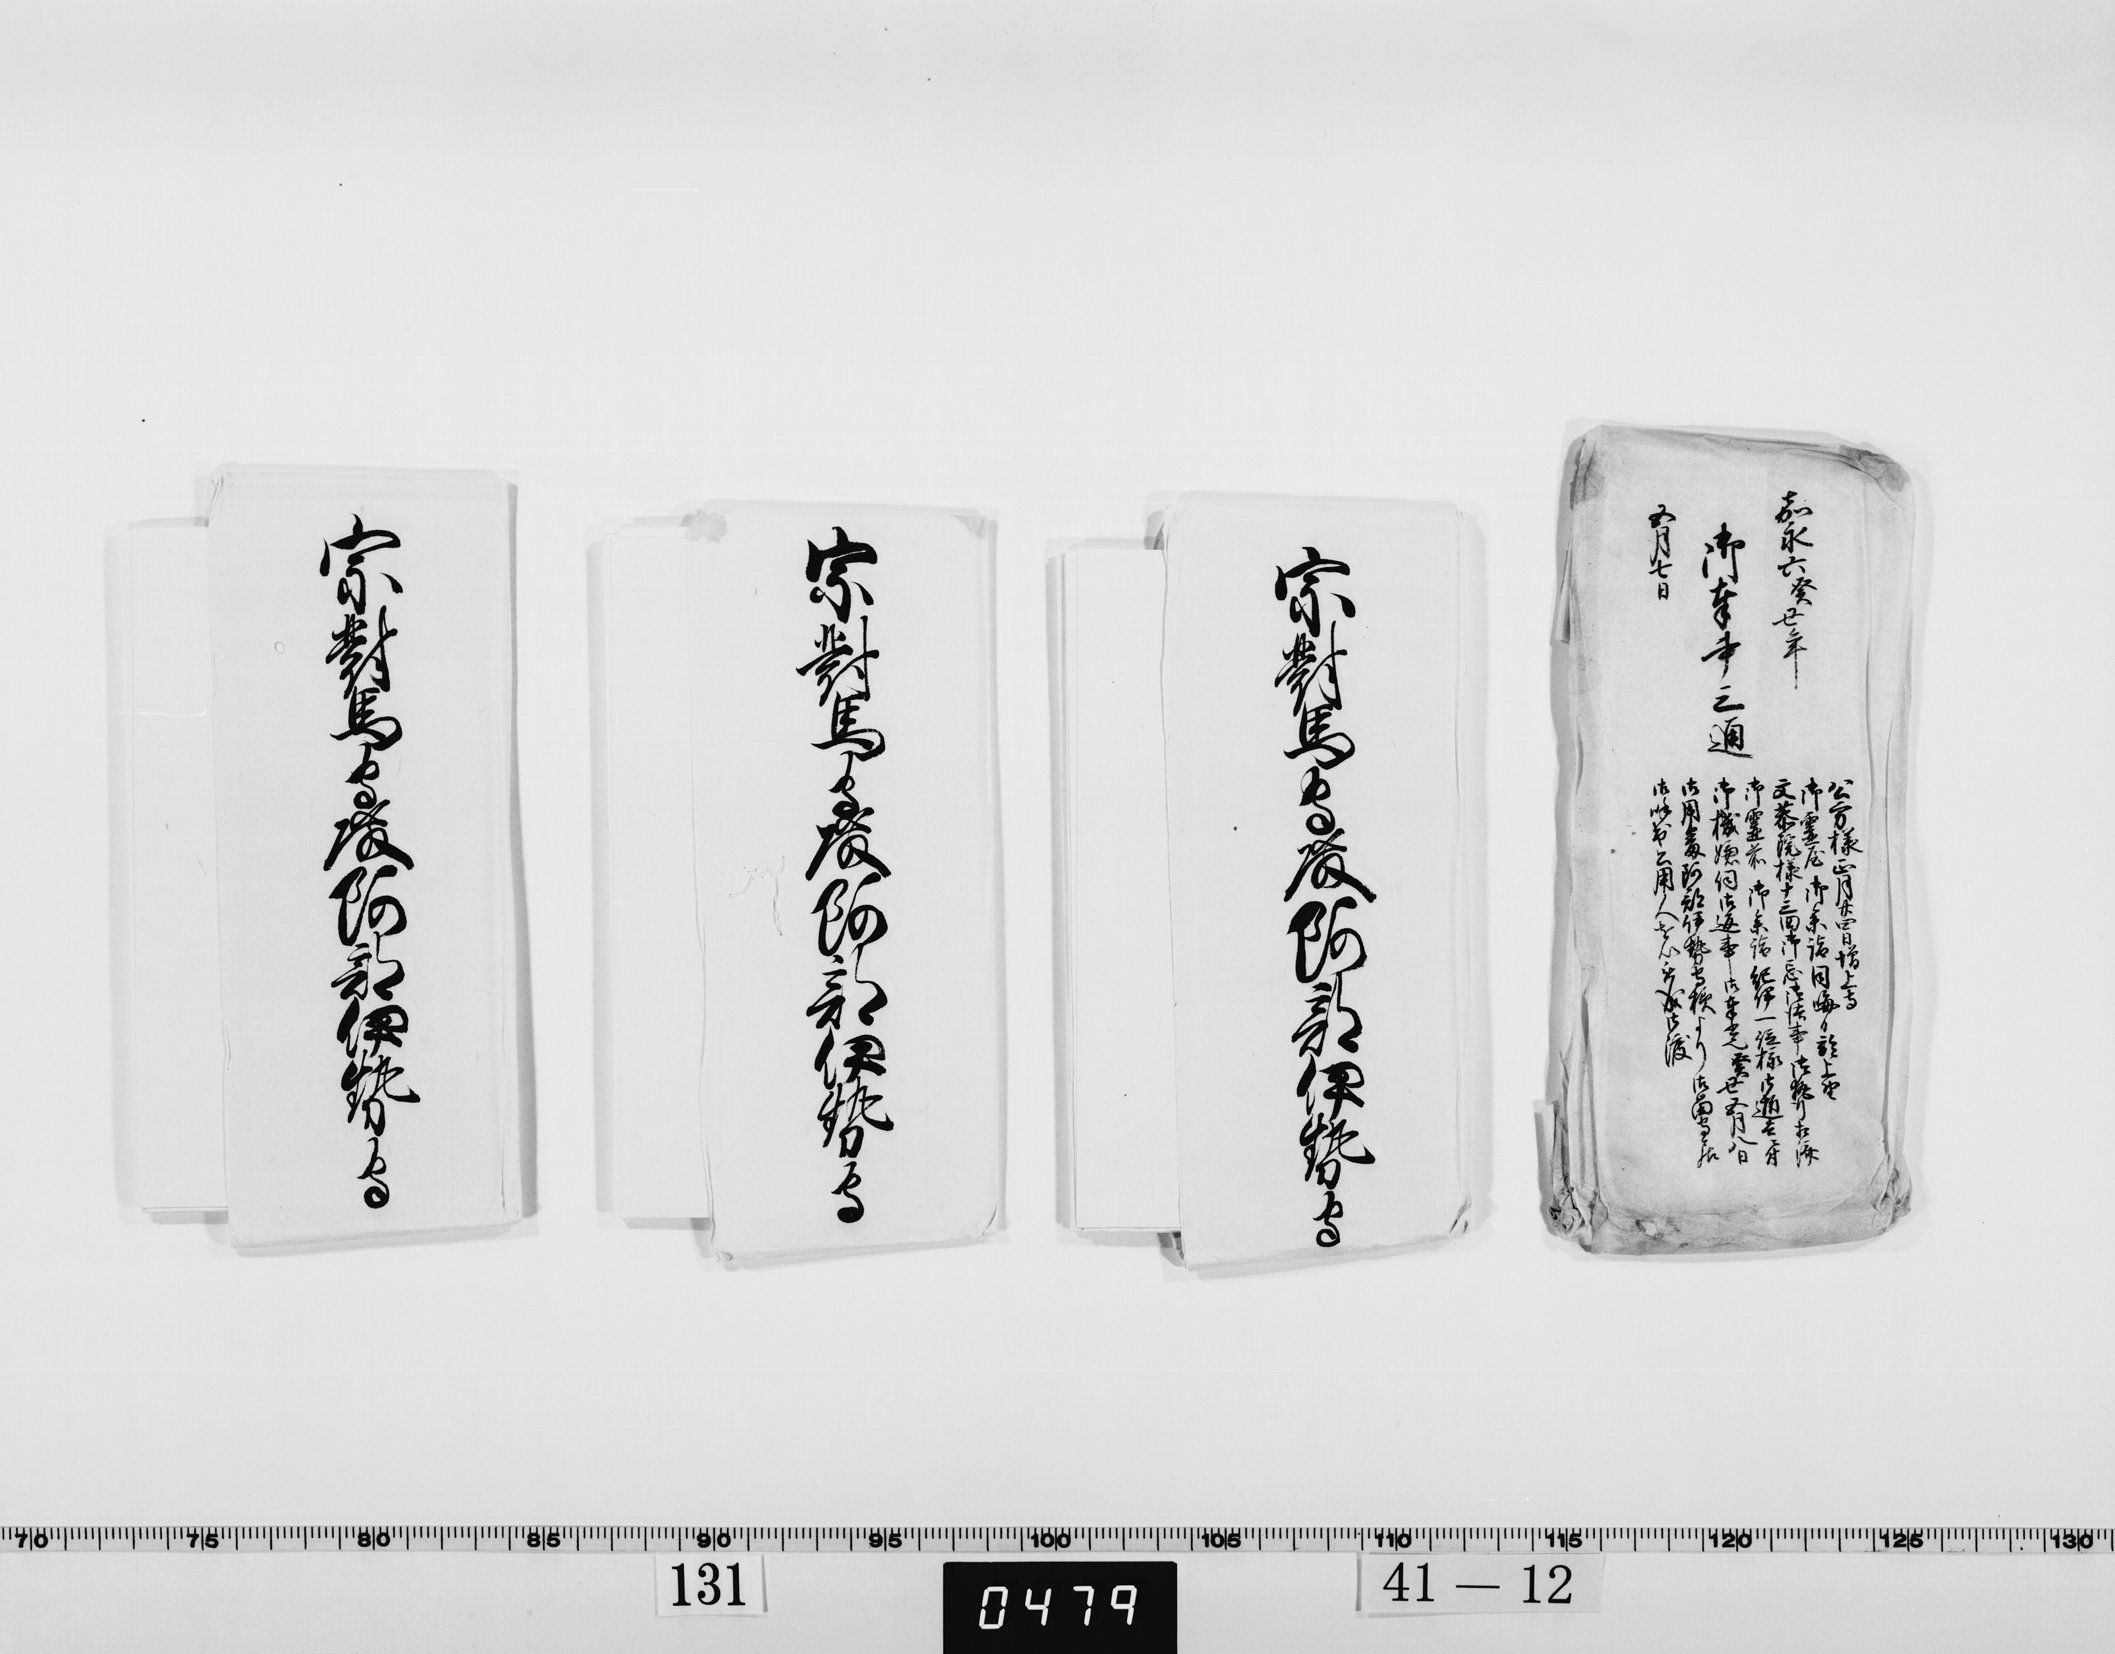 嘉永六癸丑年
御奉書三通
五月七日
公方様正月廿四日増上寺
御霊屋御参詣同晦日於上野
文恭院様十三回御忌御法事御執行相済
御霊前御参詣紀伊一位様御逝去ニ付
御機嫌伺御返事御奉書癸丑五月八日
御用番阿部伊勢守様より御留守居
御呼出公用人を以
宗對馬守殿阿部伊勢守
宗對馬守殿阿部伊勢守
宗對馬守殿阿部伊勢守
70 75 80 85 90 95 100 105 110 115 120 125 130
131
0479
41—12